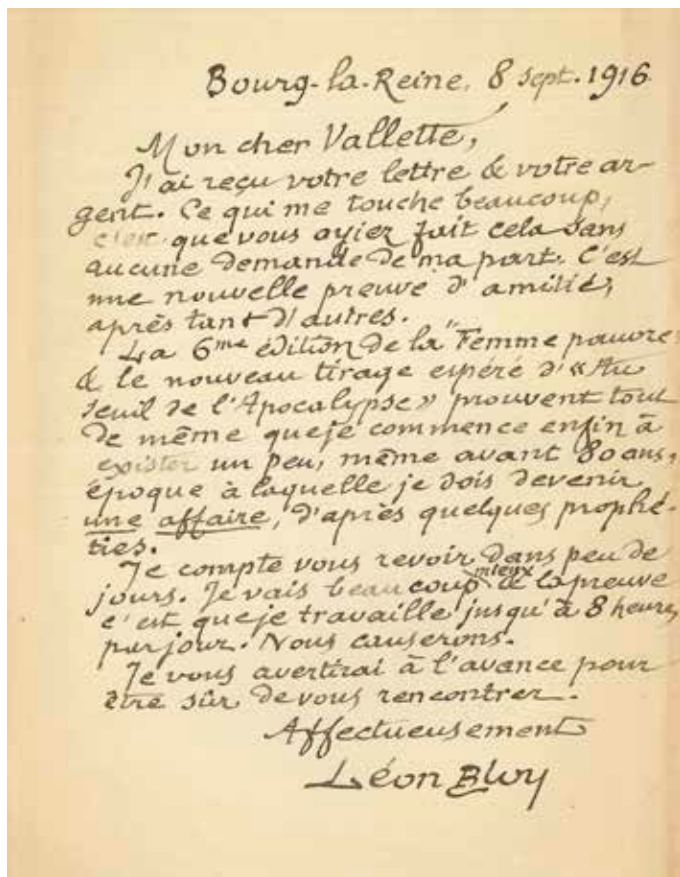 Bourg-la-Reine, 8 sept. 1916
Mon cher Vallette,
J'ai reçu votre lettre & votre ar-
gent. Ce qui me touche beaucoup,
c'est que vous ayiez fait cela sans
aucune demande de ma part. C'est
une nouvelle preuve d'amitié,
après tant d'autres.
La 6me édition de la "Femme pauvre"
& le nouveau tirage espéré d'« Au
seuil de l'Apocalypse » prouvent tout
de même que je commence enfin à
exister un peu, même avant 80 ans,
époque à laquelle je dois devenir
une affaire, d'après quelques prophé-
ties.
Je compte vous revoir dans peu de
jours. Je vais beaucoup mieux & la preuve
c'est que je travaille jusqu'à 8 heures
par jour. Nous causerons.
Je vous avertirai à l'avance pour
être sûr de vous rencontrer.
Affectueusement
Léon Bloy